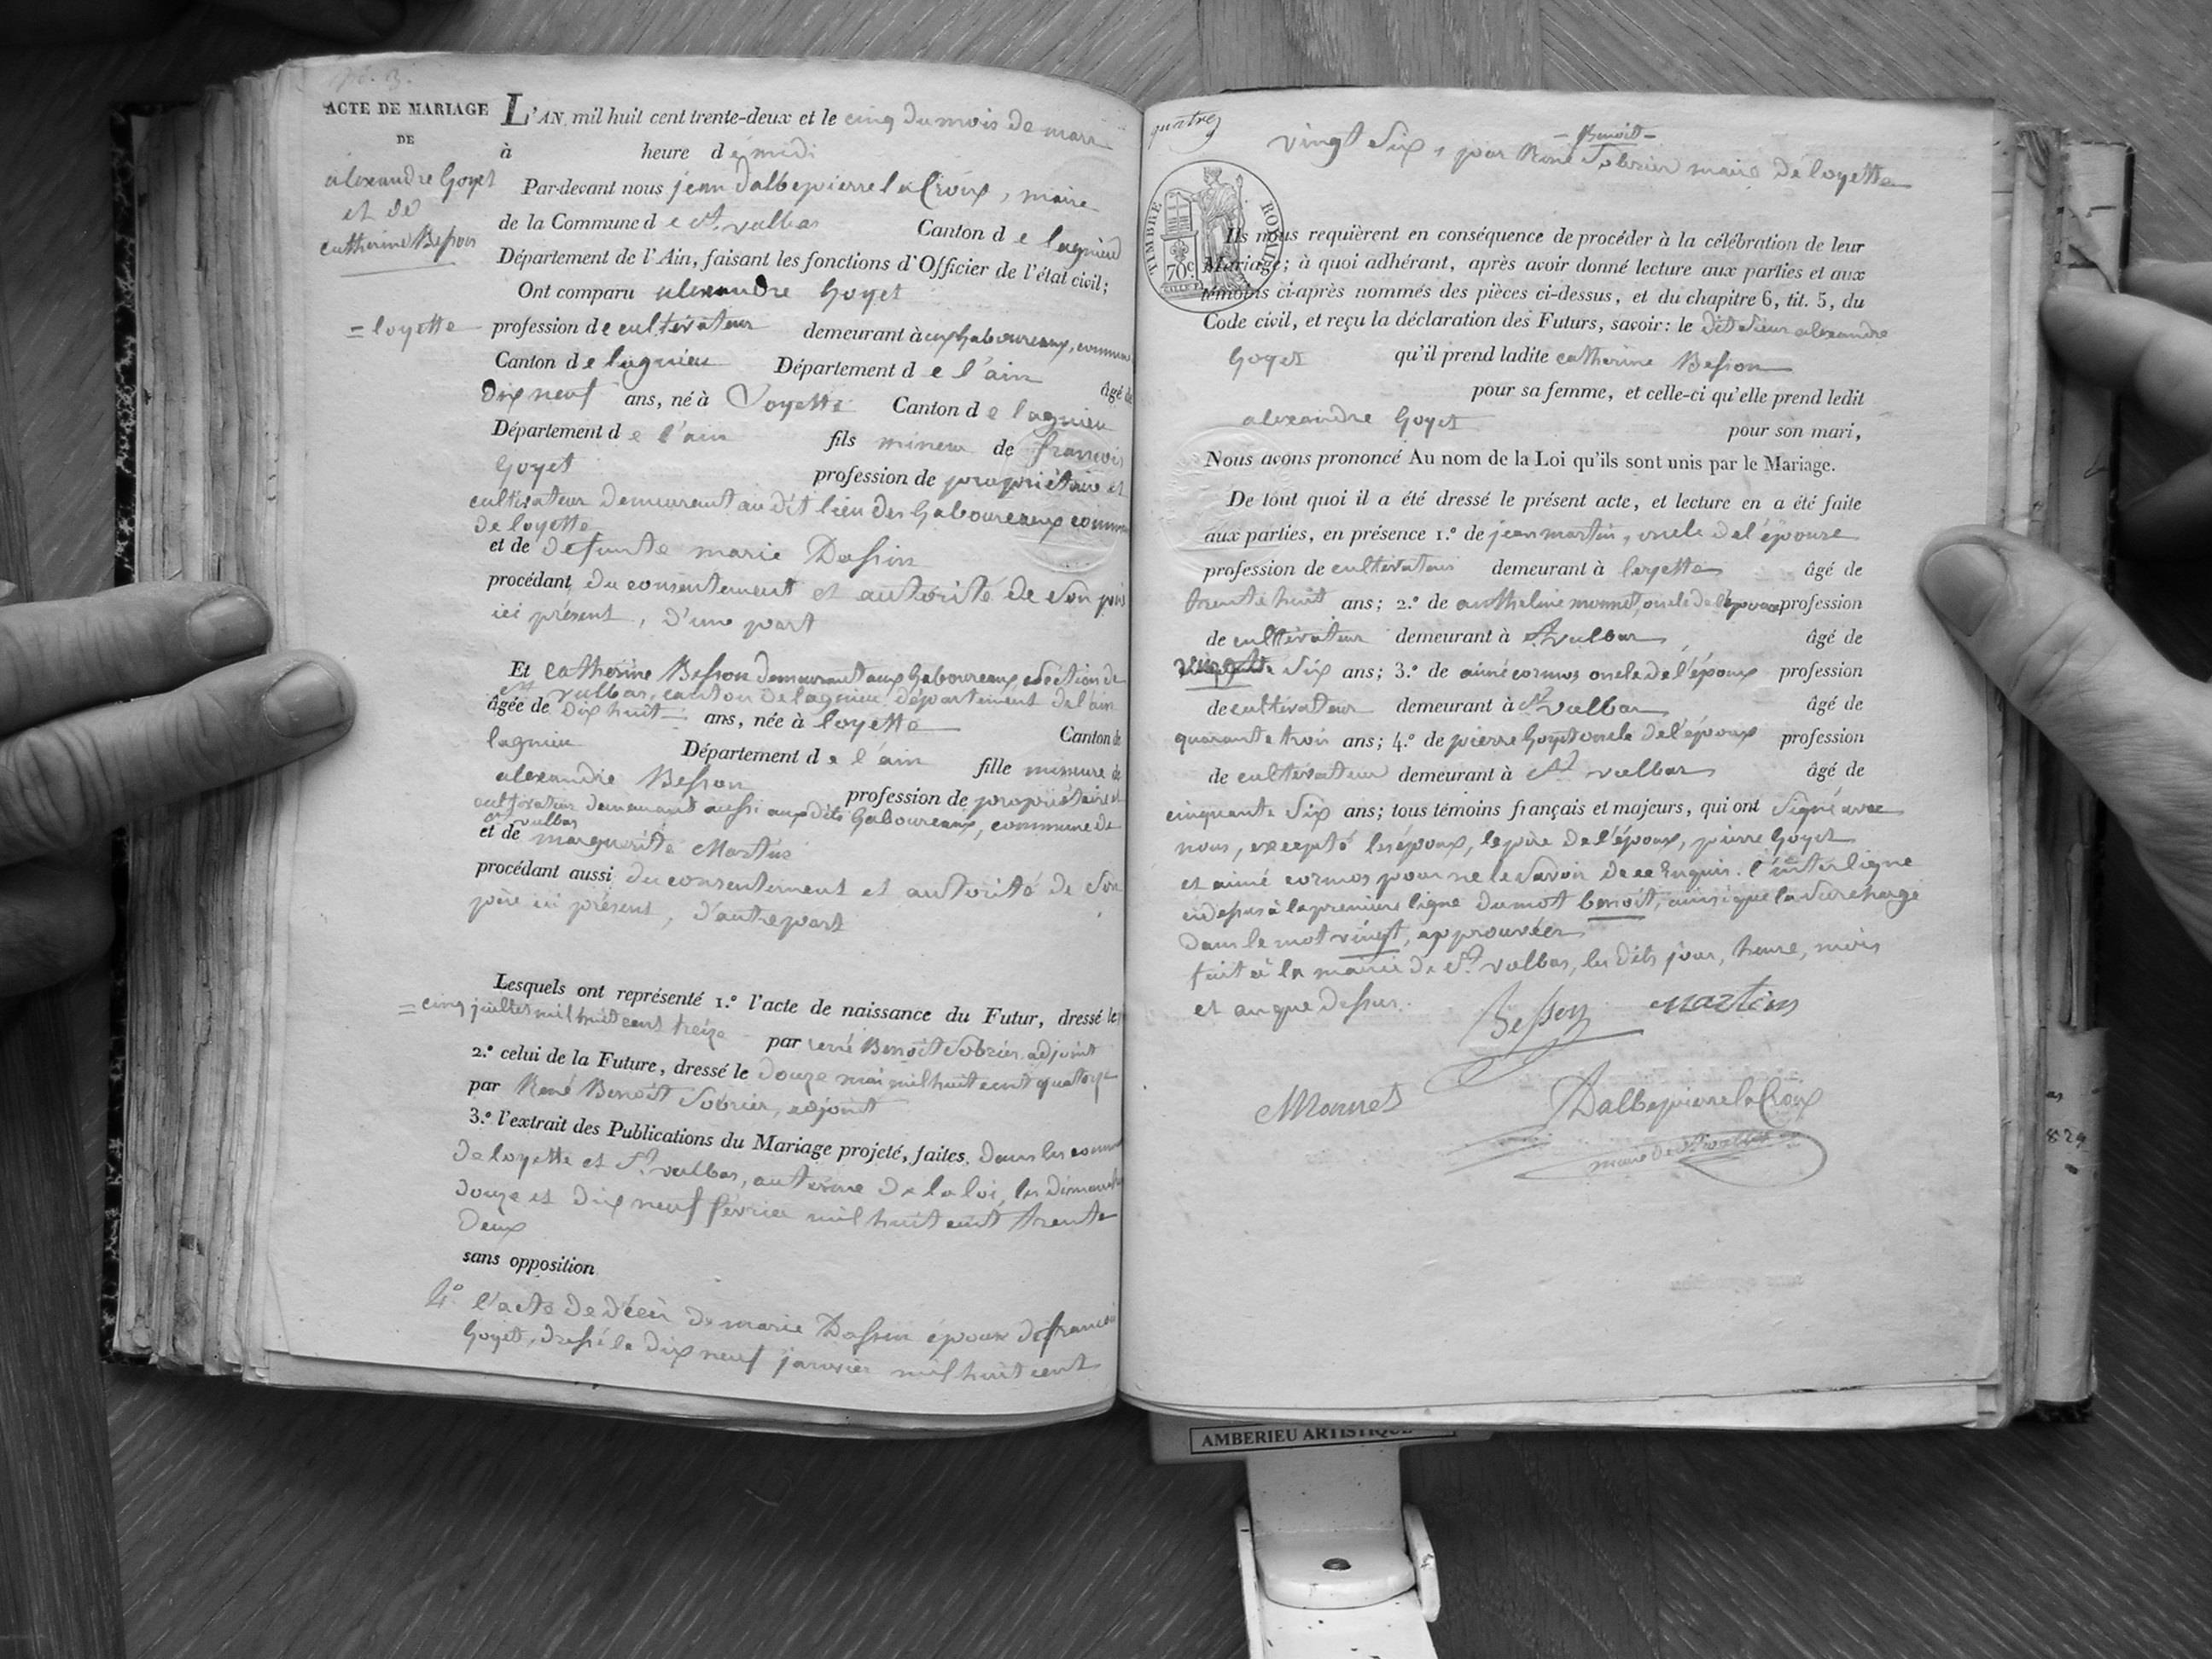 ACTE DE MARIAGE
DE
alexandre Goyet
et de
catherine Besson
= loyette
L'AN mil huit cent trente-deux et le cinq du mois de mars
à heure de midi
Par-devant nous jean Dalbepierre la Croix, maire
de la Commune de St. vulbas Canton de lagnieu
Département de l'Ain, faisant les fonctions d'Officier de l'état civil;
Ont comparu alexandre Goyet
profession de cultivateur demeurant à aux gaboureaux, commune
Canton de lagnieu Département de l'ain âgé de
Dix neuf ans, né à Loyette Canton de lagnieu
Département de l'ain fils mineur de francois
Goyet profession de propriétaire et
cultivateur demeurant au dit lieu des Gaboureaux commune
de loyette
et de defunte marie Dassin
procédant du consentement et autorité de son père
ici présent, d'une part
Et catherine Besson demeurant aux Gaboureaux section de
St vulbas, canton de lagnieu département de l'ain
âgée de Dix huit ans, née à loyette Canton de
lagnieu Département de l'ain fille mineure de
alexandre Besson profession de propriétaire et
cultivateur demeurant aussi aux dits Gaboureaux, commune de
St vulbas
et de marguerite Martin
procédant aussi du consentement et autorité de son
père ici présent, d'autre part
Lesquels ont représenté 1.° l'acte de naissance du Futur, dressé le
= cinq juillet mil huit cent treize par rené Benoît Sobrier adjoint
2.° celui de la Future, dressé le douze mai mil huit cent quatorze
par René Benoît Sobrier, adjoint
3.° l'extrait des Publications du Mariage projeté, faites, dans les communes
de loyette et St vulbas, au terme de la loi, les dimanches
douze et dix neuf février mil huit cent trente
deux
sans opposition
4° l'acte de décès de marie Dassin épouse de francois
Goyet, dressé le dix neuf janvier mil huit cent
quatre
- Benoit -
vingt six, par René Sobrier maire de loyette
TIMBRE ROYAL
70c
Ils nous requièrent en conséquence de procéder à la célébration de leur
Mariage; à quoi adhérant, après avoir donné lecture aux parties et aux
témoins ci-après nommés des pièces ci-dessus, et du chapitre 6, tit. 5, du
Code civil, et reçu la déclaration des Futurs, savoir: le dit sieur alexandre
Goyet qu'il prend ladite catherine Besson
pour sa femme, et celle-ci qu'elle prend ledit
alexandre Goyet pour son mari,
Nous avons prononcé Au nom de la Loi qu'ils sont unis par le Mariage.
De tout quoi il a été dressé le présent acte, et lecture en a été faite
aux parties, en présence 1.° de jean martin, oncle de l'épouse
profession de cultivateur demeurant à loyette âgé de
trente huit ans; 2.° de anthelme monnet, oncle de l'épouse profession
de cultivateur demeurant à St vulbas âgé de
vingt six ans; 3.° de aimé cormos oncle de l'époux profession
de cultivateur demeurant à St vulbas âgé de
quarante trois ans; 4.° de pierre Goyet oncle de l'époux profession
de cultivateur demeurant à St vulbas âgé de
cinquante six ans; tous témoins français et majeurs, qui ont signé avec
nous, excepté les époux, le père de l'époux, pierre Goyet
et aimé cormos pour ne le savoir de ce Enquis. l'interligne
cidessus à la premiere ligne du mot benoît, ainsi que la surcharge
dans le mot vingt, approuvées
fait à la mairie de St vulbas, les dits jour, heure, mois
et an que dessus.
Besson martin
Monnet DalbepierrelaCroix
maire de St vulbas
829
AMBERIEU ARTISTIQUE